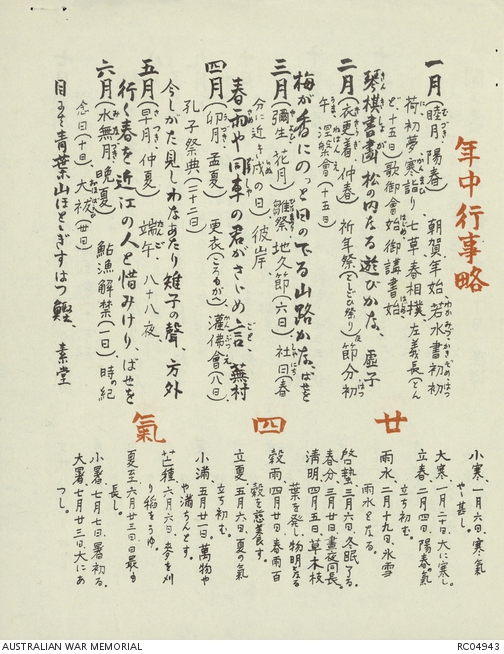 年中行事略
一月(睦月、陽春) 朝賀、年始、若水、書初、初
荷、初夢、寒詣り、七草、春相撲、左義長(どん
ど、十五日)歌御會始、御講書始、
琴棋書畫松の内なる遊びかな、虚子
二月(衣更着、仲春) 祈年祭(としごひ祭り)節分、初
午、涅槃會(十五日)
梅が香にのっと日のでる山路かな、ばせを
三月(彌生、花月) 雛祭、地久節(六日)、社日(春
分に近き戌の日) 彼岸、
春雨や同車の君がさゞめ言、蕪村
四月(卯月、孟夏) 更衣(ころもがへ)、灌佛會(八日)
孔子祭典(二十二日)
今しがた見しわたあたり雉子の聲、方外
五月(早月、仲夏) 端午、八十八夜、
行く春を近江の人と惜みけり、ばせを
六月(水無月、晩夏) 鮎漁解禁(一日) 時の紀
念日(十日)、大祓(卅日)、
目には青葉山ほとゝぎすはつ鰹、素堂
廿四氣
小寒、一月六日、寒氣
やゝ甚し。
大寒、一月二十日、大に寒し。
立春、二月四日、陽春の氣
立ち初む。
雨水、二月十九日、氷雪
雨水となる。
啓蟄、三月六日、冬眠了る。
春分、三月廿日、晝夜同長。
清明、四月五日、草木枝
葉を発し物明となる
穀雨、四月廿日、春雨百
穀を慈養す。
立夏、五月六日、夏の氣
立ち初む。
小滿、五月廿一日、萬物や
や滿ちんとす。
芒種、六月六日、麥を刈
り稻をうゆ。
夏至、六月廿三日、日最も
長し。
小暑、七月七日、暑初る。
大暑、七月廿三日、大にあ
つし。
AUSTRALIAN WAR MEMORIAL
RC04943